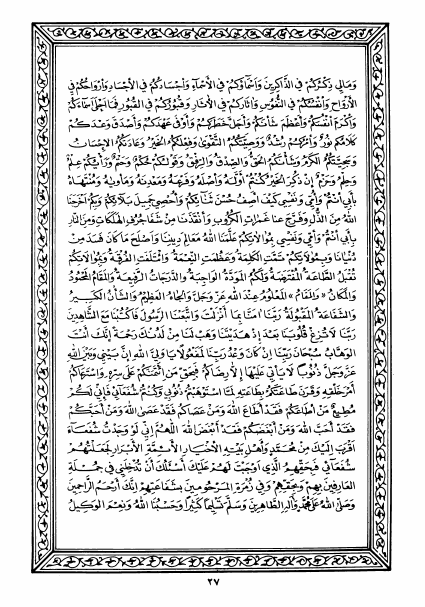 وَمَالِي ذِكْرُكُمْ فِي الذَّاكِرِينَ وَأَسْمَاؤُكُمْ فِي الْأَسْمَاءِ وَأَجْسَادُكُمْ فِي الْأَجْسَادِ وَأَرْوَاحُكُمْ فِي
الْأَرْوَاحِ وَأَنْفُسُكُمْ فِي النُّفُوسِ وَآثَارُكُمْ فِي الْآثَارِ وَقُبُورُكُمْ فِي الْقُبُورِ فَمَا أَحْلَىٰ أَسْمَاءَكُمْ
وَأَكْرَمَ أَنْفُسَكُمْ وَأَعْظَمَ شَأْنَكُمْ وَأَجَلَّ خَطَرَكُمْ وَأَوْفَىٰ عَهْدَكُمْ وَأَصْدَقَ وَعْدَكُمْ
كَلَامُكُمْ نُورٌ وَأَمْرُكُمْ رُشْدٌ وَوَصِيَّتُكُمُ التَّقْوَىٰ وَفِعْلُكُمُ الْخَيْرُ وَعَادَتُكُمُ الْإِحْسَانُ
وَسَجِيَّتُكُمُ الْكَرَمُ وَشَأْنُكُمُ الْحَقُّ وَالصِّدْقُ وَالرِّفْقُ وَقَوْلُكُمْ حُكْمٌ وَحَتْمٌ وَرَأْيُكُمْ عِلْمٌ
وَحِلْمٌ وَحَزْمٌ إِنْ ذُكِرَ الْخَيْرُ كُنْتُمْ أَوَّلَهُ وَأَصْلَهُ وَفَرْعَهُ وَمَعْدِنَهُ وَمَأْوِيهُ وَمُنْتَهَاهُ
بِأَبِي أَنْتُمْ وَأُمِّي وَنَفْسِي كَيْفَ أَصِفُ حُسْنَ ثَنَائِكُمْ وَأُحْصِي جَمِيلَ بَلَائِكُمْ وَبِكُمْ أَخْرَجَنَا
اللهُ مِنَ الذُّلِّ وَفَرَّجَ عَنَّا غَمَرَاتِ الْكُرُوبِ وَأَنْقَذَنَا مِنْ شَفَا جُرُفِ الْهَلَكَاتِ وَمِنَ النَّارِ
بِأَبِي أَنْتُمْ وَأُمِّي وَنَفْسِي بِمُوَالَاتِكُمْ عَلَّمَنَا اللهُ مَعَالِمَ دِينِنَا وَأَصْلَحَ مَا كَانَ فَسَدَ مِنْ
دُنْيَانَا وَبِمُوَالَاتِكُمْ تَمَّتِ الْكَلِمَةُ وَعَظُمَتِ النِّعْمَةُ وَائْتَلَفَتِ الْفُرْقَةُ وَبِمُوَالَاتِكُمْ
تُقْبَلُ الطَّاعَةُ الْمُفْتَرَضَةُ وَلَكُمُ الْمَوَدَّةُ الْوَاجِبَةُ وَالدَّرَجَاتُ الرَّفِيعَةُ وَالْمَقَامُ الْمَحْمُودُ
وَالْمَكَانُ «وَالْمَقَامُ» الْمَعْلُومُ عِنْدَ اللهِ عَزَّ وَجَلَّ وَالْجَاهُ الْعَظِيمُ وَالشَّأْنُ الْكَبِيرُ
وَالشَّفَاعَةُ الْمَقْبُولَةُ رَبَّنَا آمَنَّا بِمَا أَنْزَلْتَ وَاتَّبَعْنَا الرَّسُولَ فَاكْتُبْنَا مَعَ الشَّاهِدِينَ
رَبَّنَا لَا تُزِغْ قُلُوبَنَا بَعْدَ إِذْ هَدَيْتَنَا وَهَبْ لَنَا مِنْ لَدُنْكَ رَحْمَةً إِنَّكَ أَنْتَ
الْوَهَّابُ سُبْحَانَ رَبِّنَا إِنْ كَانَ وَعْدُ رَبِّنَا لَمَفْعُولًا يَا وَلِيَّ اللهِ إِنَّ بَيْنِي وَبَيْنَ اللهِ
عَزَّ وَجَلَّ ذُنُوبًا لَا يَأْتِي عَلَيْهَا إِلَّا رِضَاكُمْ فَبِحَقِّ مَنِ ائْتَمَنَكُمْ عَلَىٰ سِرِّهِ وَاسْتَرْعَاكُمْ
أَمْرَ خَلْقِهِ وَقَرَنَ طَاعَتَكُمْ بِطَاعَتِهِ لَمَّا اسْتَوْهَبْتُمْ ذُنُوبِي وَكُنْتُمْ شُفَعَائِي فَإِنِّي لَكُمْ
مُطِيعٌ مَنْ أَطَاعَكُمْ فَقَدْ أَطَاعَ اللهَ وَمَنْ عَصَاكُمْ فَقَدْ عَصَى اللهَ وَمَنْ أَحَبَّكُمْ
فَقَدْ أَحَبَّ اللهَ وَمَنْ أَبْغَضَكُمْ فَقَدْ أَبْغَضَ اللهَ اللّٰهُمَّ إِنِّي لَوْ وَجَدْتُ شُفَعَاءَ
أَقْرَبَ إِلَيْكَ مِنْ مُحَمَّدٍ وَأَهْلِ بَيْتِهِ الْأَخْيَارِ الْأَئِمَّةِ الْأَبْرَارِ لَجَعَلْتُهُمْ
شُفَعَائِي فَبِحَقِّهِمُ الَّذِي أَوْجَبْتَ لَهُمْ عَلَيْكَ أَسْئَلُكَ أَنْ تُدْخِلَنِي فِي جُمْلَةِ
الْعَارِفِينَ بِهِمْ وَبِحَقِّهِمْ وَفِي زُمْرَةِ الْمَرْحُومِينَ بِشَفَاعَتِهِمْ إِنَّكَ أَرْحَمُ الرَّاحِمِينَ
وَصَلَّى اللهُ عَلَىٰ مُحَمَّدٍ وَآلِهِ الطَّاهِرِينَ وَسَلَّمَ تَسْلِيمًا كَثِيرًا وَحَسْبُنَا اللهُ وَنِعْمَ الْوَكِيلُ
٢٧